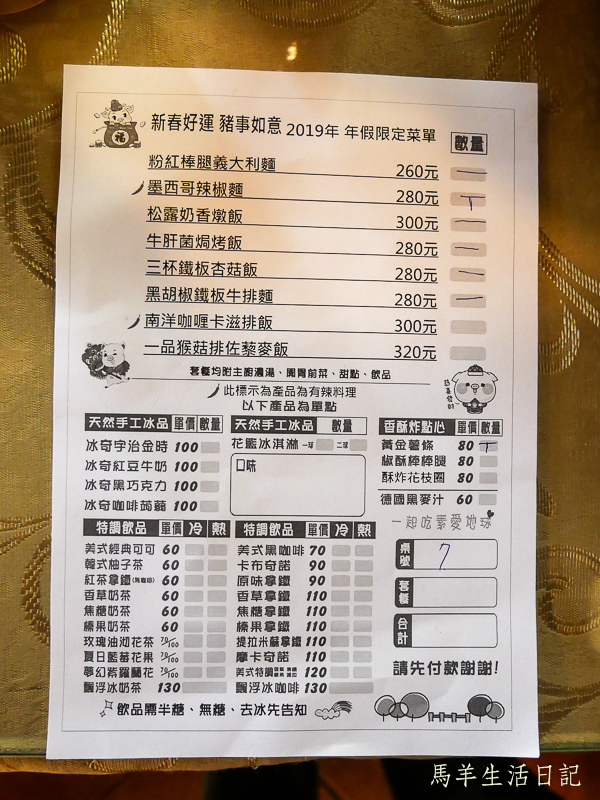 福
新春好運 豬事如意 2019年 年假限定菜單 數量
粉紅棒腿義大利麵 260元 一
墨西哥辣椒麵 280元 丅
松露奶香燉飯 300元 一
牛肝菌焗烤飯 280元 一
三杯鐵板杏菇飯 280元 一
黑胡椒鐵板牛排麵 280元 一
南洋咖喱卡滋排飯 300元
一品猴菇排佐藜麥飯 320元
套餐均附主廚濃湯、開胃前菜、甜點、飲品
此標示為產品為有辣料理
以下產品為單點
天然手工冰品 單價 數量
冰奇宇治金時 100
冰奇紅豆牛奶 100
冰奇黑巧克力 100
冰奇咖啡蒟蒻 100
天然手工冰品 數量
花籃冰淇淋 一球 二球
口味
香酥炸點心 單價 數量
黃金薯條 80 丅
椒酥棒棒腿 80
酥炸花枝圈 80
德國黑麥汁 60
一起吃素愛地球
特調飲品 單價 冷 熱
美式經典可可 60
韓式柚子茶 60
紅茶拿鐵 60
香草奶茶 60
焦糖奶茶 60
榛果奶茶 60
玫瑰油沏花茶 70/100
夏日藍莓花果 70/100
夢幻紫羅蘭花 70/100
飄浮冰奶茶 130
特調飲品 單價 冷 熱
美式黑咖啡 70
卡布奇諾 90
原味拿鐵 90
香草拿鐵 110
焦糖拿鐵 110
榛果拿鐵 110
提拉米蘇拿鐵 110
摩卡奇諾 110
美式特調 120
飄浮冰咖啡 130
桌號 7
套餐
合計
請先付款謝謝!
飲品需半糖、無糖、去冰先告知
馬羊生活日記